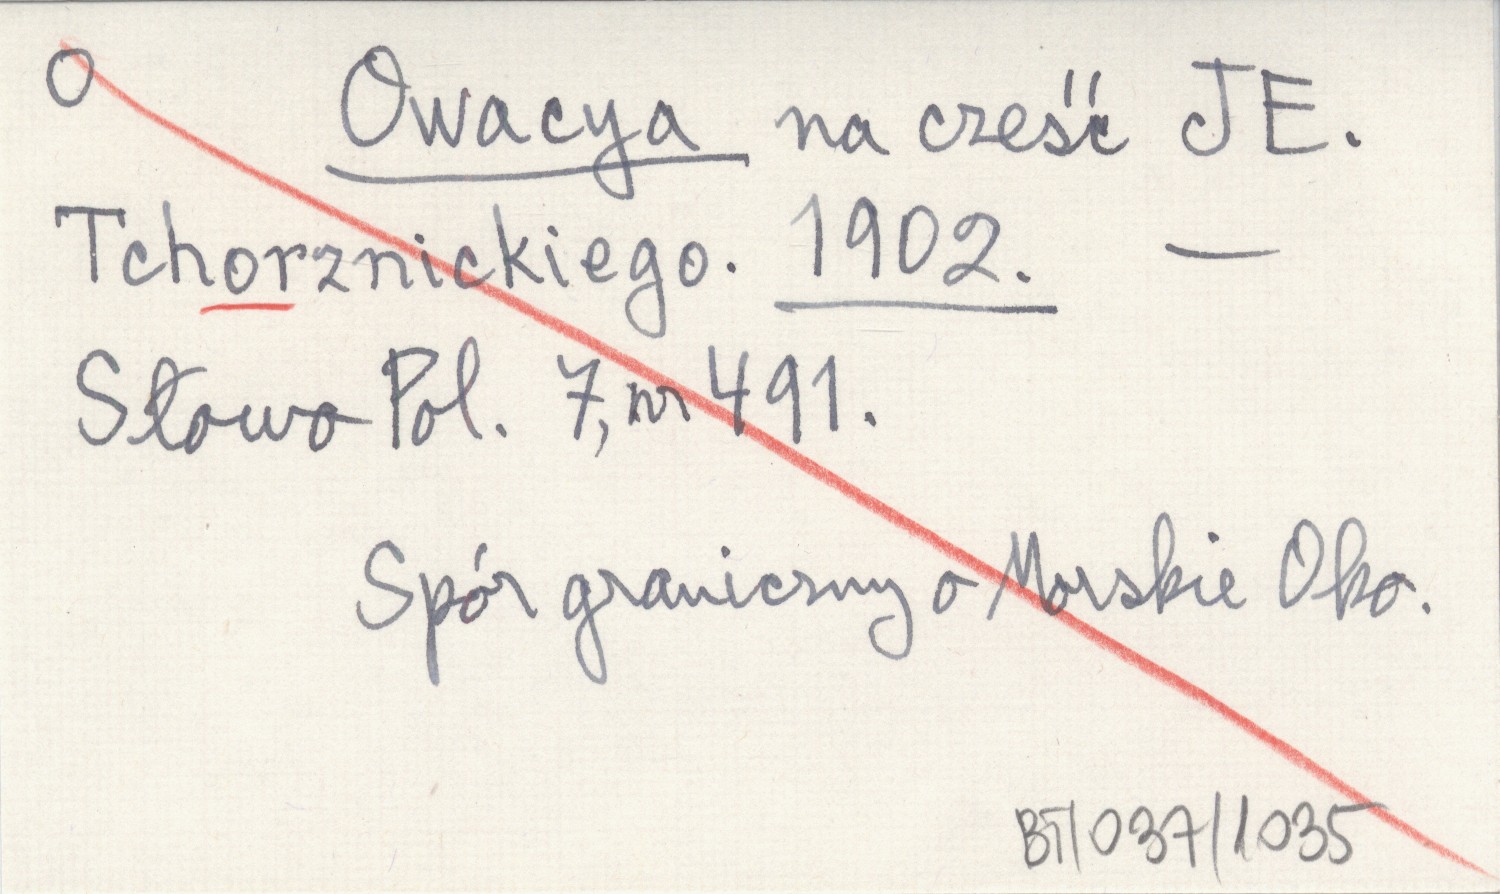 O Owacya na cześć JE.
Tchorznickiego. 1902. —
Słowo Pol. 7, nr 491.
Spór graniczny o Morskie Oko.
BT/037/1035